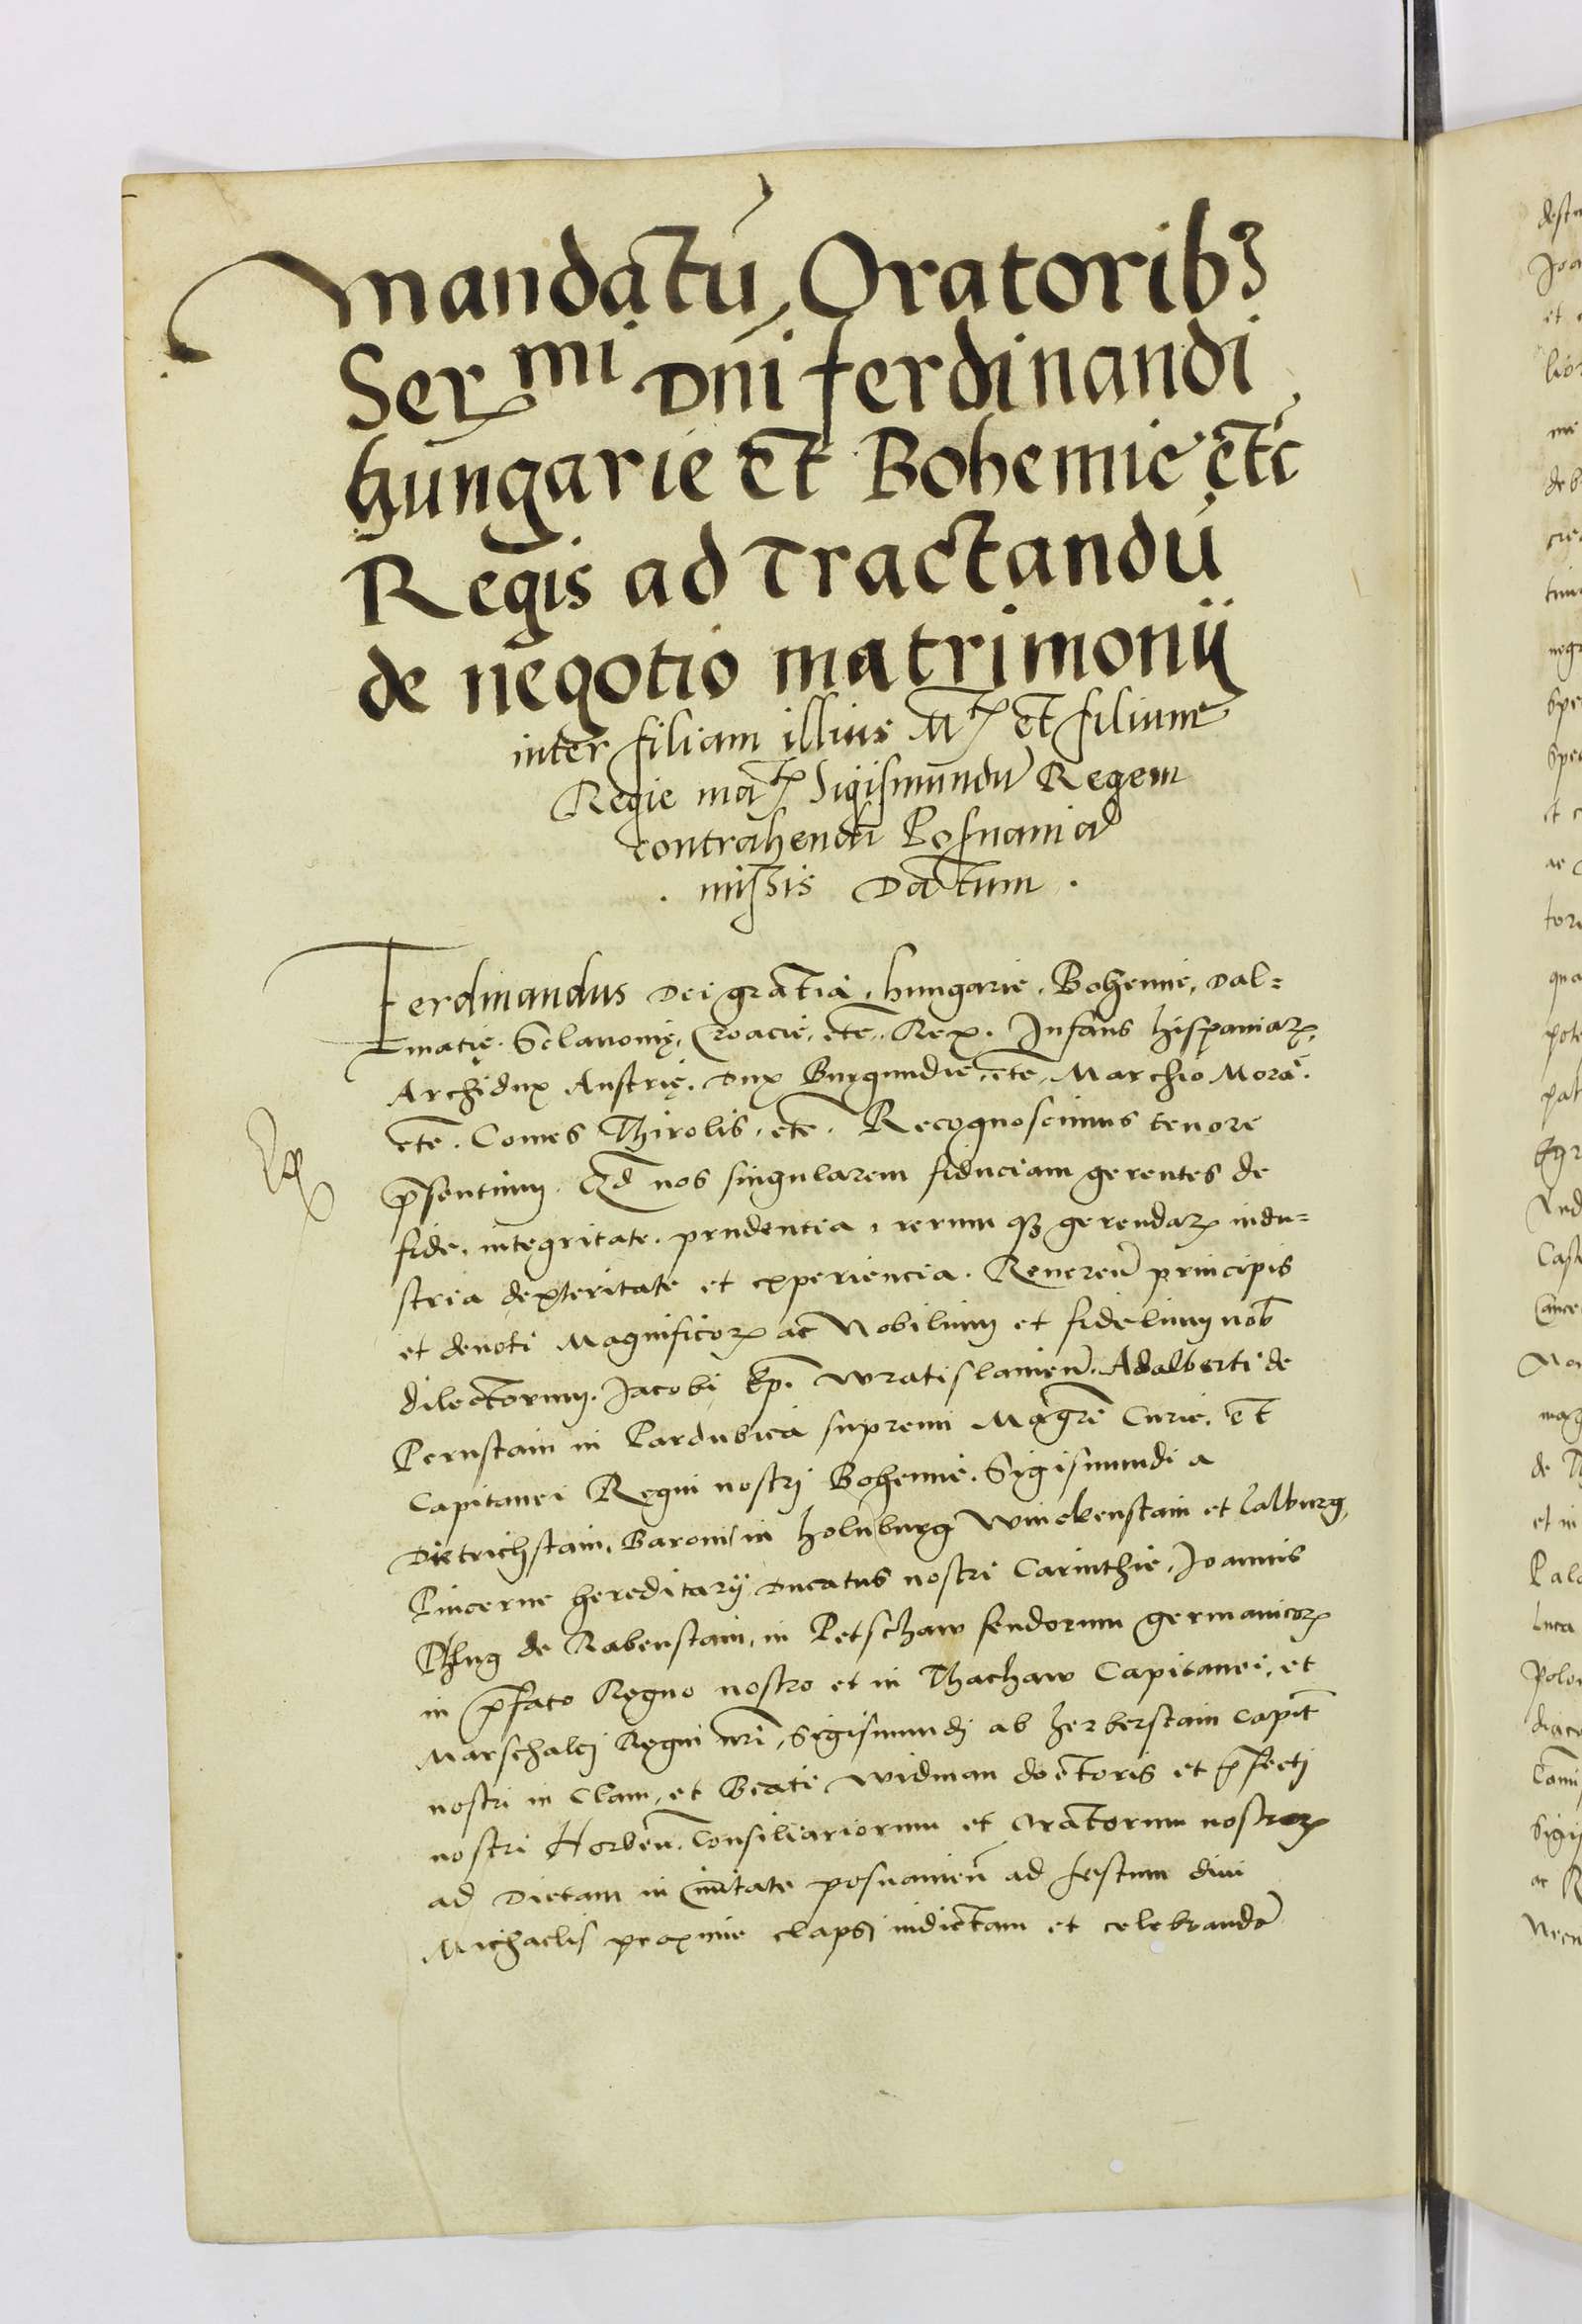 Mandatū Oratorib⁊
Serᵐⁱ Dnī ferdinandi
hungarie et Bohemie etc̄
Regis ad Tractandū
de negotio matrimonij
inter filiam illius M.tꝭ et filium
Regie ma.tꝭ Sigismundū Regem
contrahendi Posnania
. missis Datum .
Ferdinandus Dei gratia, hungarie, Bohemie, Dal=
matię, Sclavonię, Croacie, etc̄, Rex. Infans hispaniaꝝ,
Archidux Austrię, Dux Burgundie, etc̄, Marchio Mora.
etc̄. Comes Thirolis, etc̄. Recognoscimus tenore
p̄sentium. Qd nos singularem fiduciam gerentes de
fide, integritate, prudentia, rerum qꝫ gerendaꝝ indu=
stria dexteritate et experiencia. Reveren̄ principis
et devoti Magnificoꝝ ac Nobilium et fidelium nob̄
dilectorum. Jacobi Ep̄. Wratislavien̄. Adalberti de
Pernstain in Pardubica supremi Magr̄i Curie, et
Capitanei Regni nostri Bohemie. Sigismundi a
Dietrichstain, Baronis in holnburg Winckenstain et Talburg,
Pincerne hereditarij Ducatus nostri Carinthie, Joannis
Phlug de Rabenstain, in Petschaw feudorum germanicoꝝ
in p̄fato Regno nostro et in Thachaw Capitanei, et
Marschalci Regni nr̄i, Sigismundi ab herberstain Capit̄
nostri in Clam, et Beati Widman doctoris et p̄fecti
nostri Horben̄. Consiliariorum et Oratorum nostroꝝ
ad Dietam in Civitate posnanien̄ ad festum divi
Michaelis proxime elapsi indictam et celebrandā